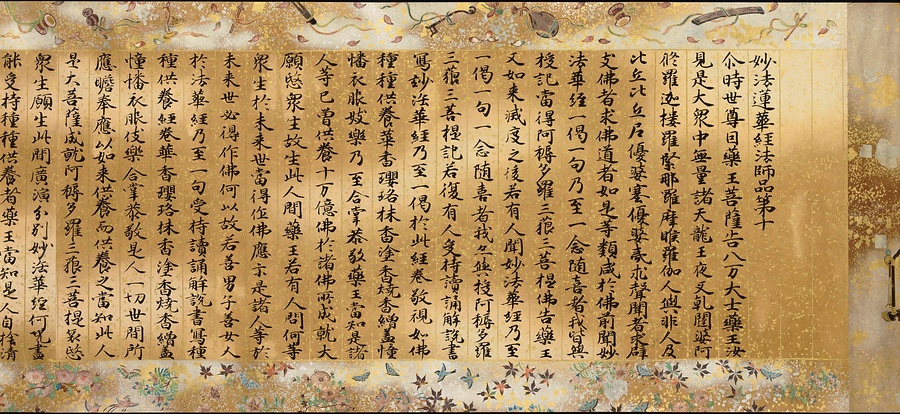 妙法蓮華經法師品第十
尒時世尊因藥王菩薩告八万大士藥王汝
見是大衆中無量諸天龍王夜叉乹闥婆阿
修羅迦樓羅緊那羅摩睺羅伽人與非人及
比丘比丘尼優婆塞優婆夷求聲聞者求辟
支佛者求佛道者如是等類咸於佛前聞妙
法華經一偈一句乃至一念随喜者我皆與
授記當得阿耨多羅三藐三菩提佛告藥王
又如来滅度之後若有人聞妙法華經乃至
一偈一句一念随喜者我亦與授阿耨多羅
三藐三菩提記若復有人受持讀誦解說書
寫妙法華經乃至一偈於此經卷敬視如佛
種種供養華香瓔珞抹香塗香燒香繒蓋幢
幡衣服妓樂乃至合掌恭敬藥王當知是諸
人等已曽供養十万億佛於諸佛所成就大
願愍衆生故生此人間藥王若有人問何等
衆生於未来世當得作佛應示是諸人等於
未来世必得作佛何以故若善男子善女人
於法華經乃至一句受持讀誦解說書寫種
種供養經卷華香瓔珞抹香塗香燒香繒蓋
幢幡衣服伎樂合掌恭敬是人一切世間所
應瞻奉應以如来供養而供養之當知此人
是大菩薩成就阿耨多羅三藐三菩提哀愍
衆生願生此間廣演分別妙法華經何況盡
能受持種種供養者藥王當知是人自捨清